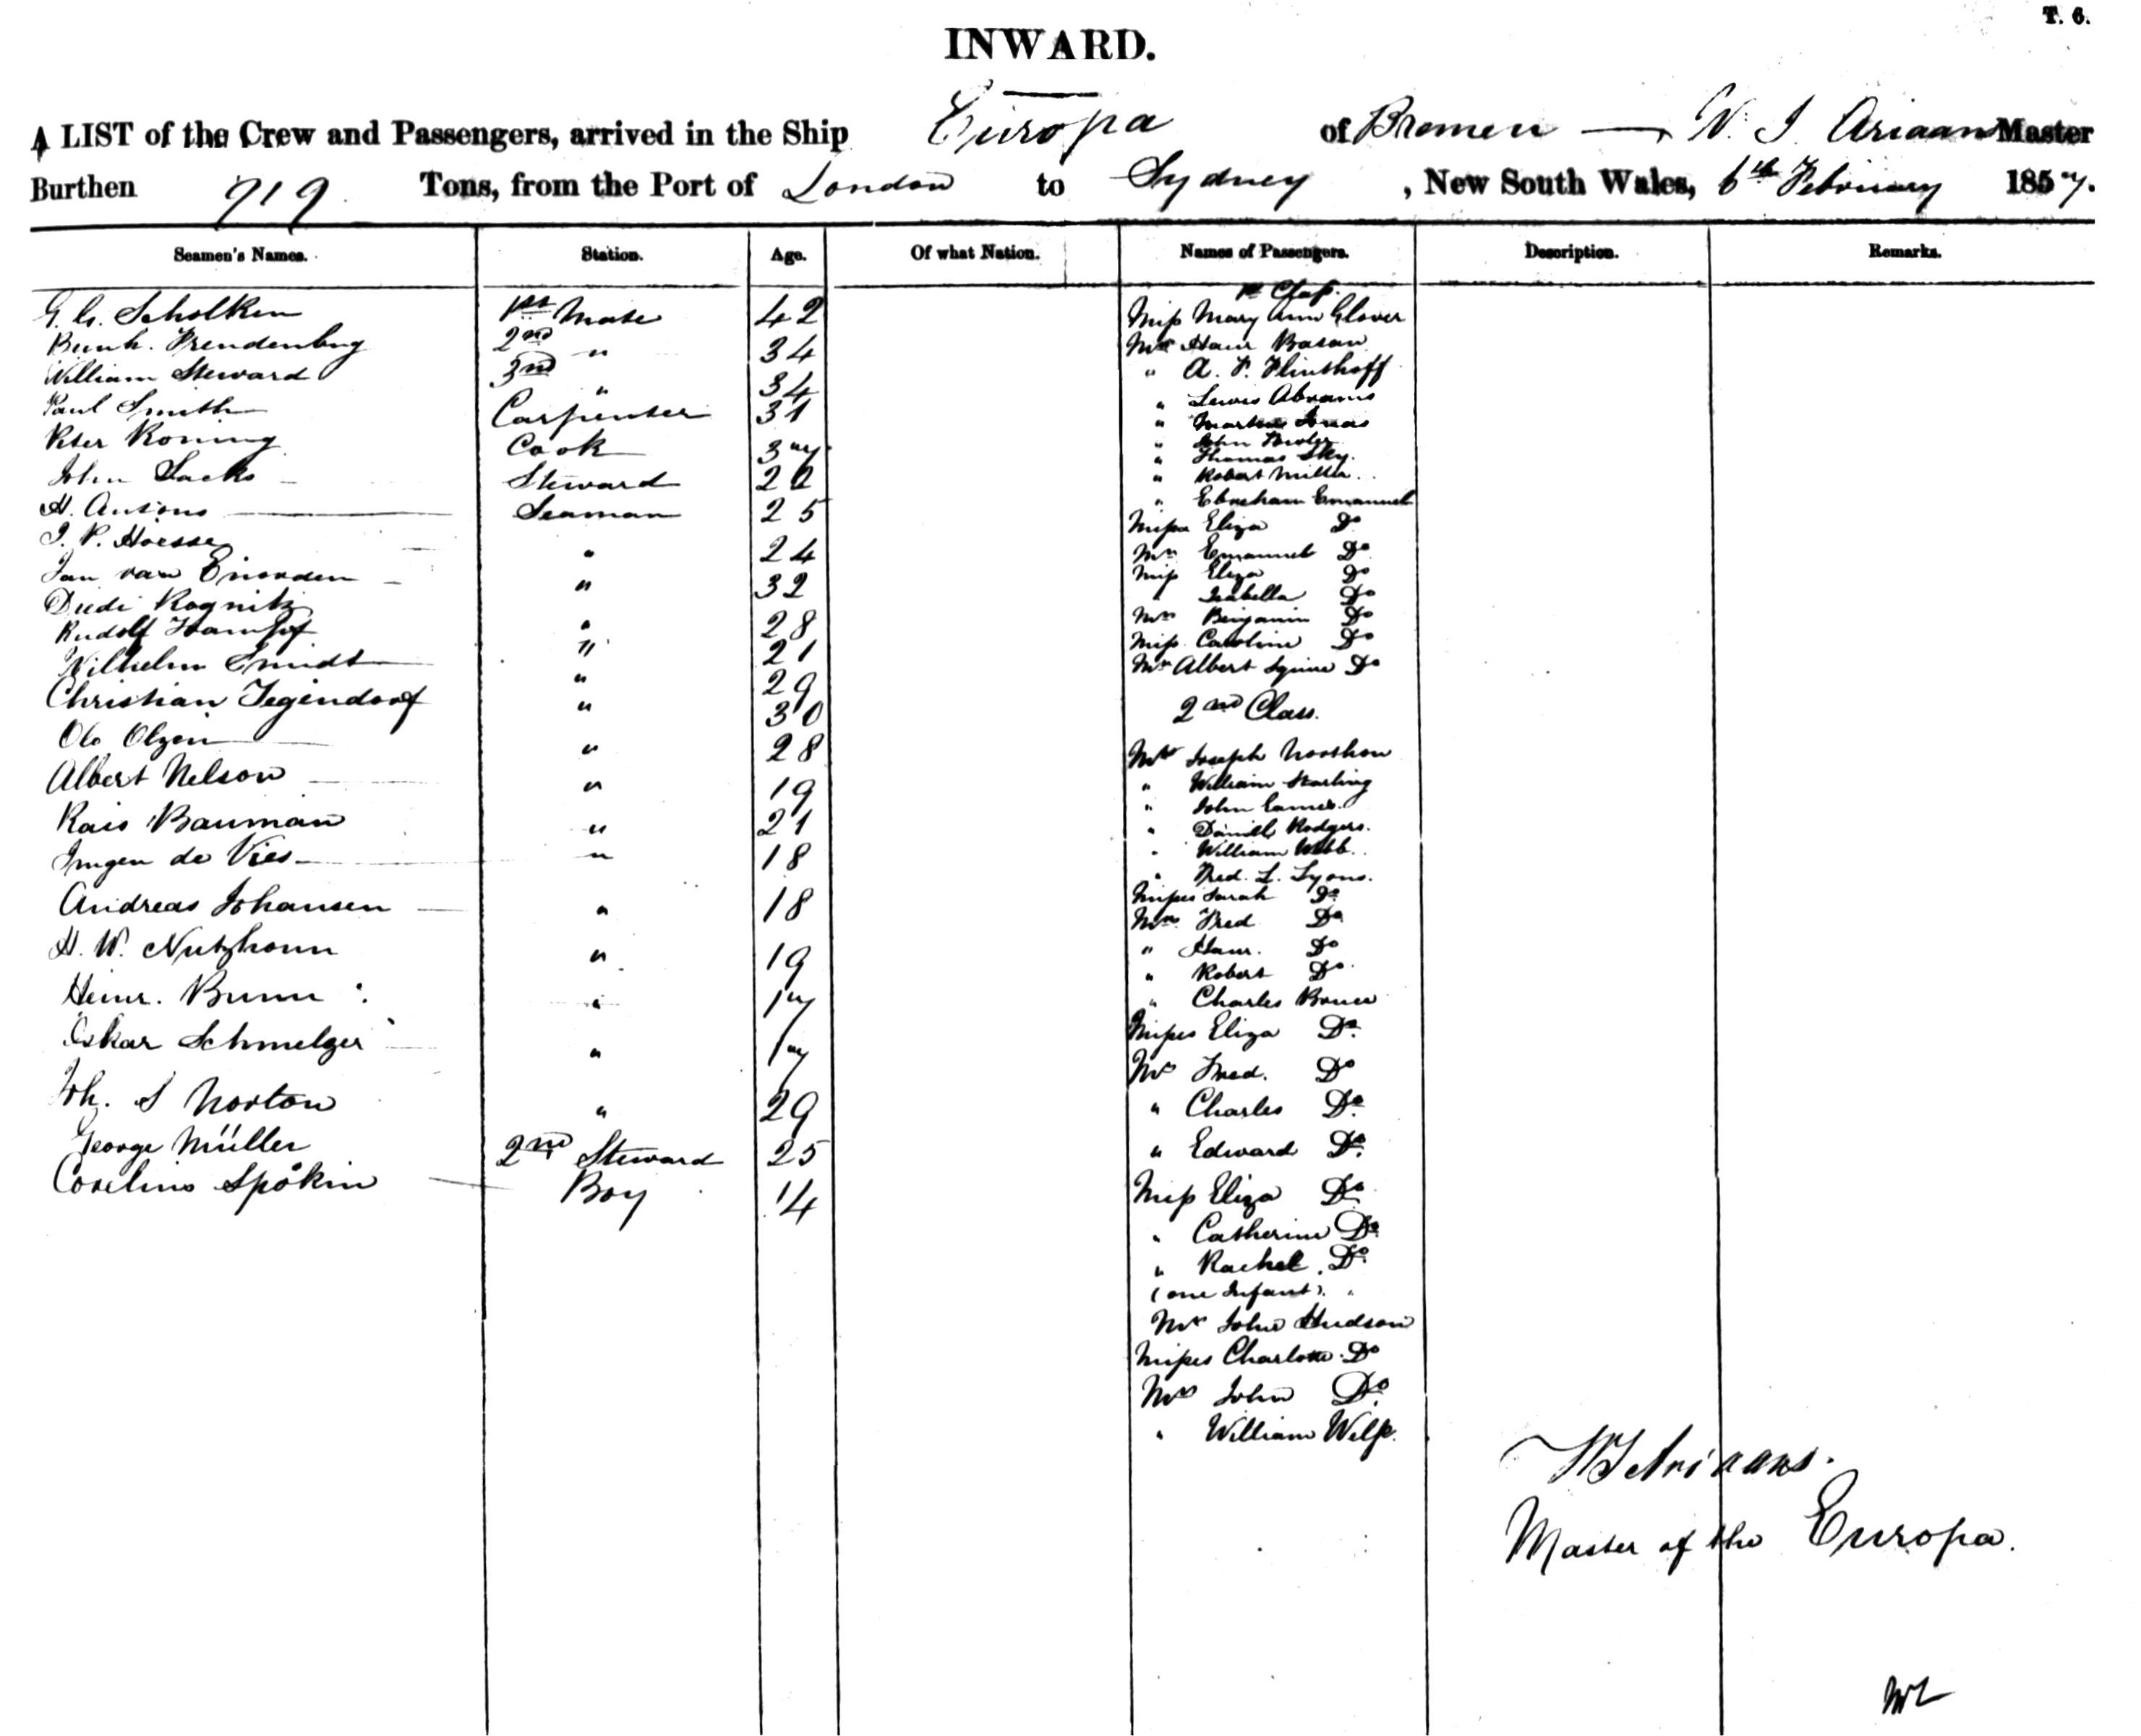 T. 6.
INWARD.
A LIST of the Crew and Passengers, arrived in the Ship Europa of Bremen — Ariaans Master
Burthen 719 Tons, from the Port of London to Sydney, New South Wales, 6th February 1857.
Seamen's Names. Station. Age. Of what Nation. Names of Passengers. Description. Remarks.
Scholken 1st Mate 42
2nd " 34
William Steward 3rd " 34
Paul Smith Carpenter 31
Peter Koning Cook 37
John Sacks Steward 22
H. Antons Seaman 25
" 24
Jan van " 32
Diedi Rognitz " 28
Rudolf " 21
Wilhelm Smidt " 29
Christian Tegendorf " 30
Ole Olzen " 28
Albert Nelson " 19
Bauman " 21
de Vies " 18
Andreas Johansen " 18
H. W. Nutzhorn " 19
Heinr. " 17
Oskar Schmelzer " 17
Joh. S Norton " 29
George Müller 2nd Steward 25
Spökin Boy 14
1st Class.
Miss Mary Ann Glover
Mr
" A. F. Flinthoff
" Lewis Abrams
"
" John
" Thomas Sky.
" Robert Miller
" Emanuel
Eliza Do
Mr Emanuel Do
Miss Eliza Do
" Isabella Do
Mr Benjamin Do
Miss Caroline Do
Mr Albert Squire Do
2nd Class.
Mr Joseph
" William Starling
" John Eames.
" Daniel Rodgers.
" William Webb.
" Fred. L. Lyons.
Sarah Do
Mr Fred Do
" Do
" Robert Do
" Charles Bruce
Eliza Do.
Mr Fred. Do
" Charles Do.
" Edward Do.
Miss Eliza Do
" Catherine Do.
" Rachel Do.
(one Infant). "
Mr John Hudson
Charlotte Do
Mr John Do.
" William
Ariaans.
Master of the Europa.